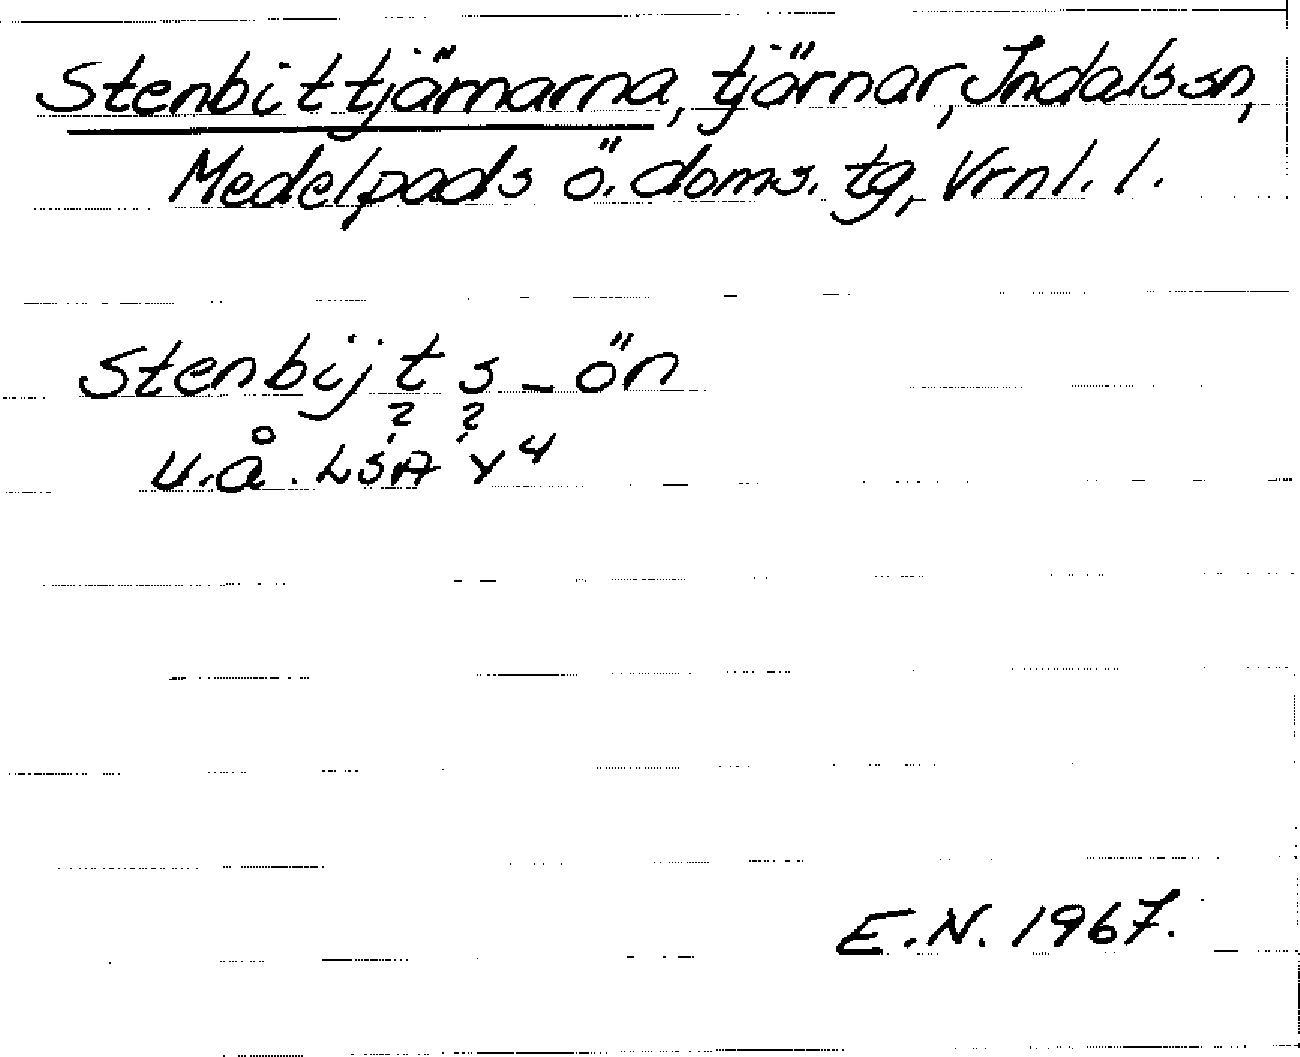 Stenbittjärnarna, tjärnar, Indals sn,
Medelpads ö. doms. tg, Vrnl. l.
Stenbijts-ön
? ?
u.å. LSA Y4
E.N. 1967.